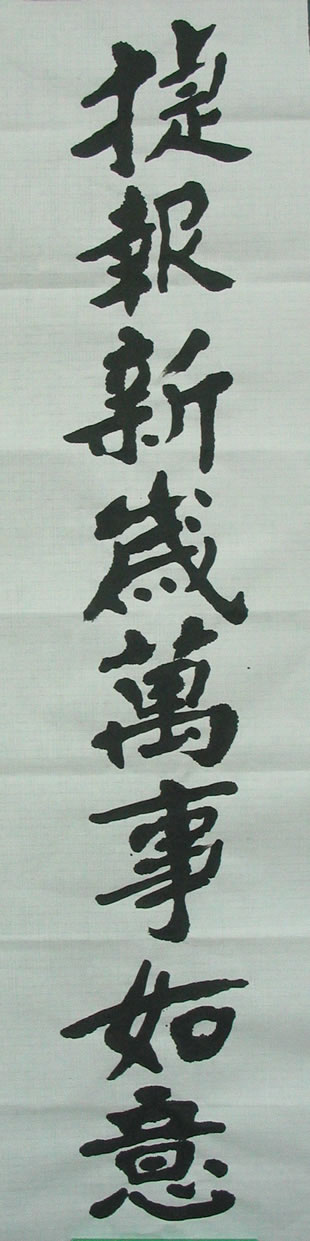 捷報新歲萬事如意